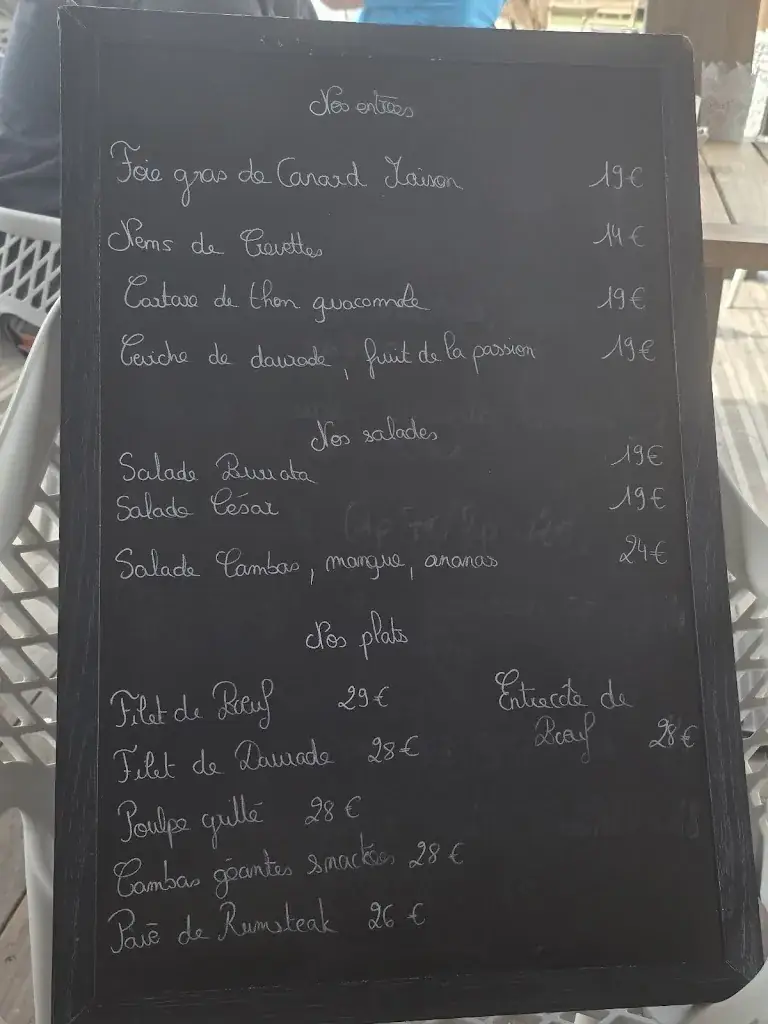 Nos entrées
Foie gras de Canard Maison 19€
Nems de Crevettes 14€
Tartare de thon guacamole 19€
Ceviche de daurade, fruit de la passion 19€
Nos salades
Salade Burrata 19€
Salade César 19€
Salade Gambas, mangue, ananas 24€
Nos plats
Filet de Bœuf 29€
Filet de Daurade 28€
Poulpe grillé 28€
Gambas géantes snackées 28€
Pavé de Rumsteak 26€
Entrecôte de
Bœuf 28€